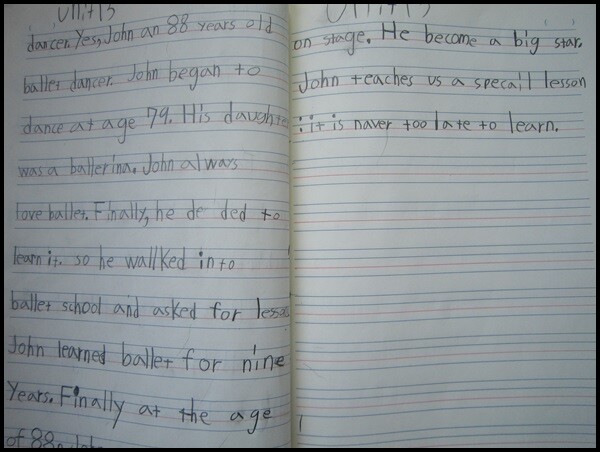 Unit 13
dancer. Yes, John an 88 years old
ballet dancer. John began to
dance at age 79. His daughte
was a ballerina. John always
love ballet. Finally, he de ded to
learn it. so he wallked into
ballet school and asked for lesso
John learned ballet for nine
Years. Finally at the age
of 88, John
Unit 13
on stage. He become a big star.
John teaches us a specail lesson
: it is naver too late to learn.